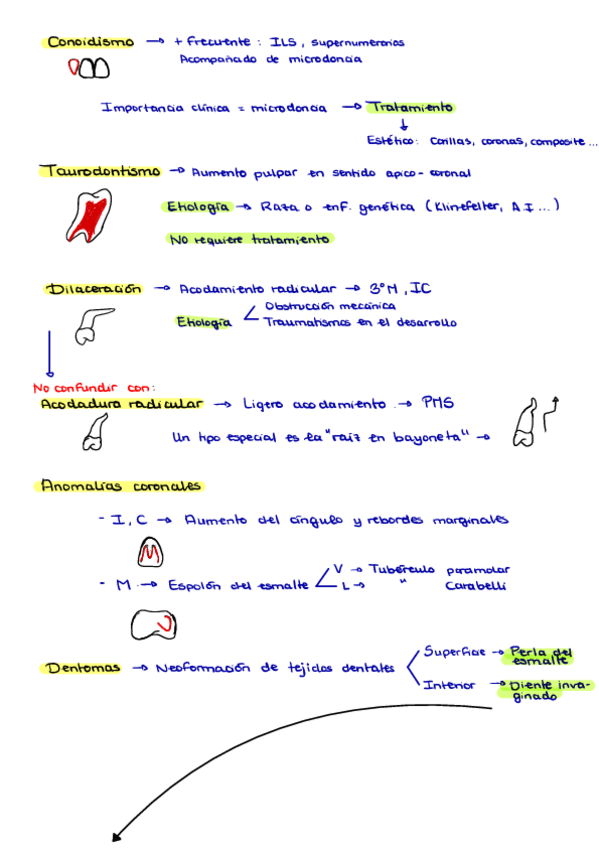 Conoidismo → + frecuente : ILS, supernumerarios
Acompañado de microdoncia
Importancia clínica = microdoncia → Tratamiento
↓
Estético: Carillas, coronas, composite...
Taurodontismo → Aumento pulpar en sentido apico-coronal
Etiología → Raza o enf. genética (Klinefelter, AI...)
No requiere tratamiento
Dilaceración → Acodamiento radicular → 3ºM, IC
Etiología
Obstrucción mecánica
Traumatismos en el desarrollo
No confundir con:
Acodadura radicular → Ligero acodamiento → PMS
Un tipo especial es la "raíz en bayoneta" →
Anomalías coronales
- I, C → Aumento del cíngulo y rebordes marginales
- M → Espolón del esmalte
V → Tubérculo paramolar
L → " Carabelli
Dentomas → Neoformación de tejidos dentales
Superficie → Perla del esmalte
Interior → Diente invaginado